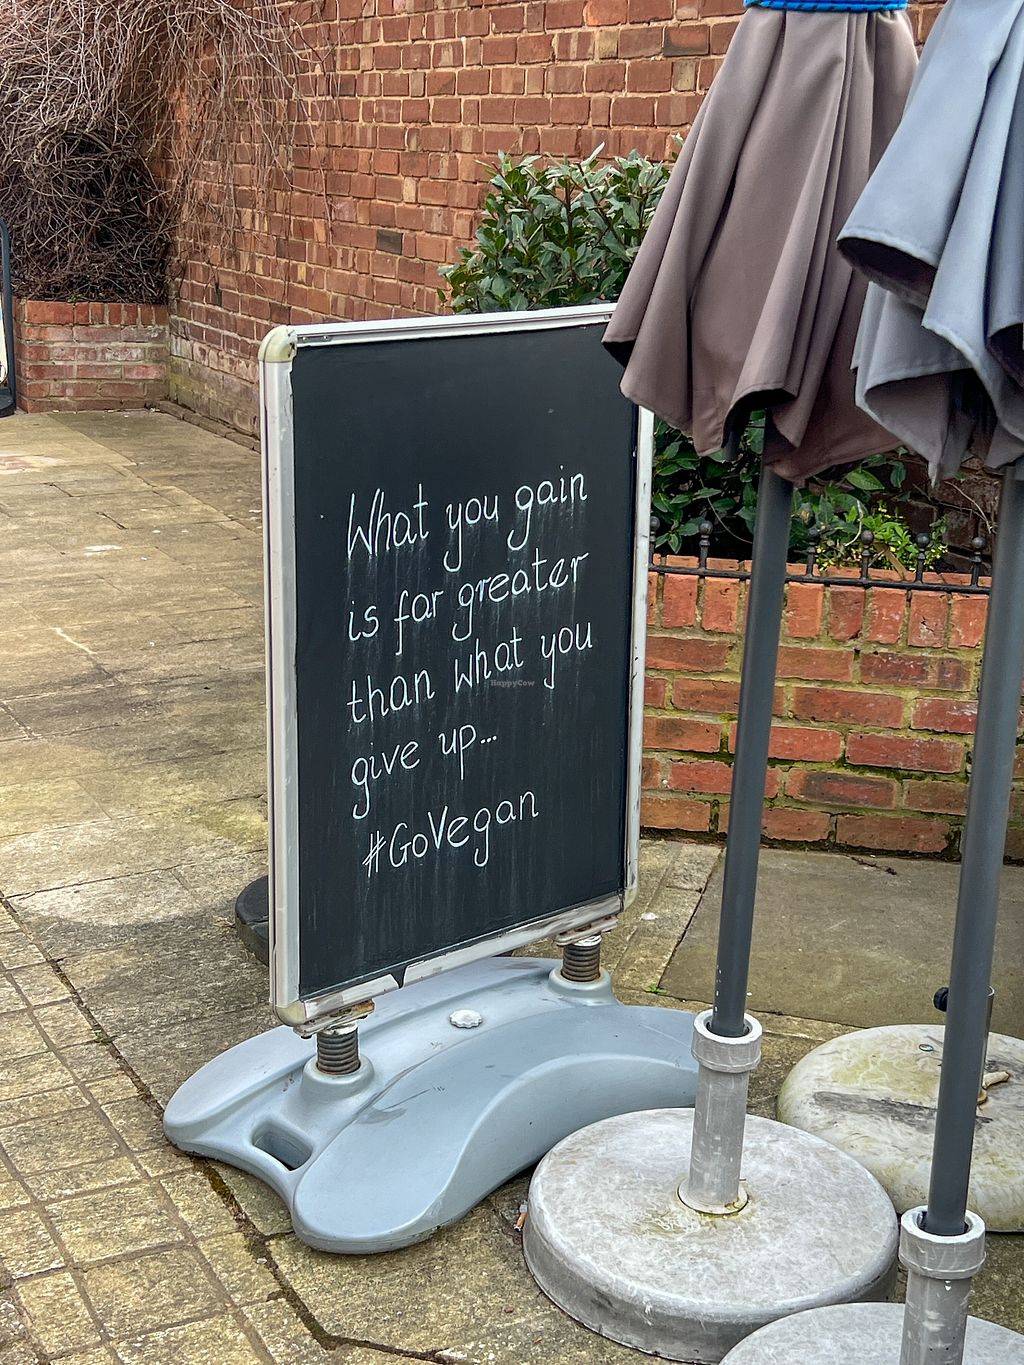 What you gain
is far greater
than what you
give up...
#GoVegan
HappyCow